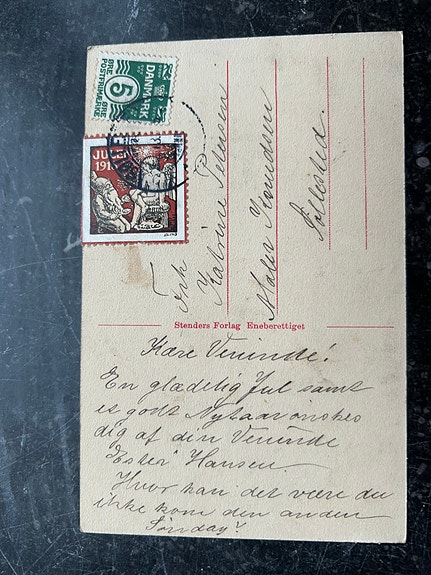 5
DANMARK
ØRE
POSTFRIMÆRKE
ØRE
JULEN
Frk
Katrine Petersen
Maler Knudsen
Stenders Forlag Eneberettiget
Kære Veninde!
En glædelig Jul samt
et godt Nytaar ønskes
dig af din Veninde
Ester Hansen.
Hvor kan det være du
ikke kom den anden
Søndag?